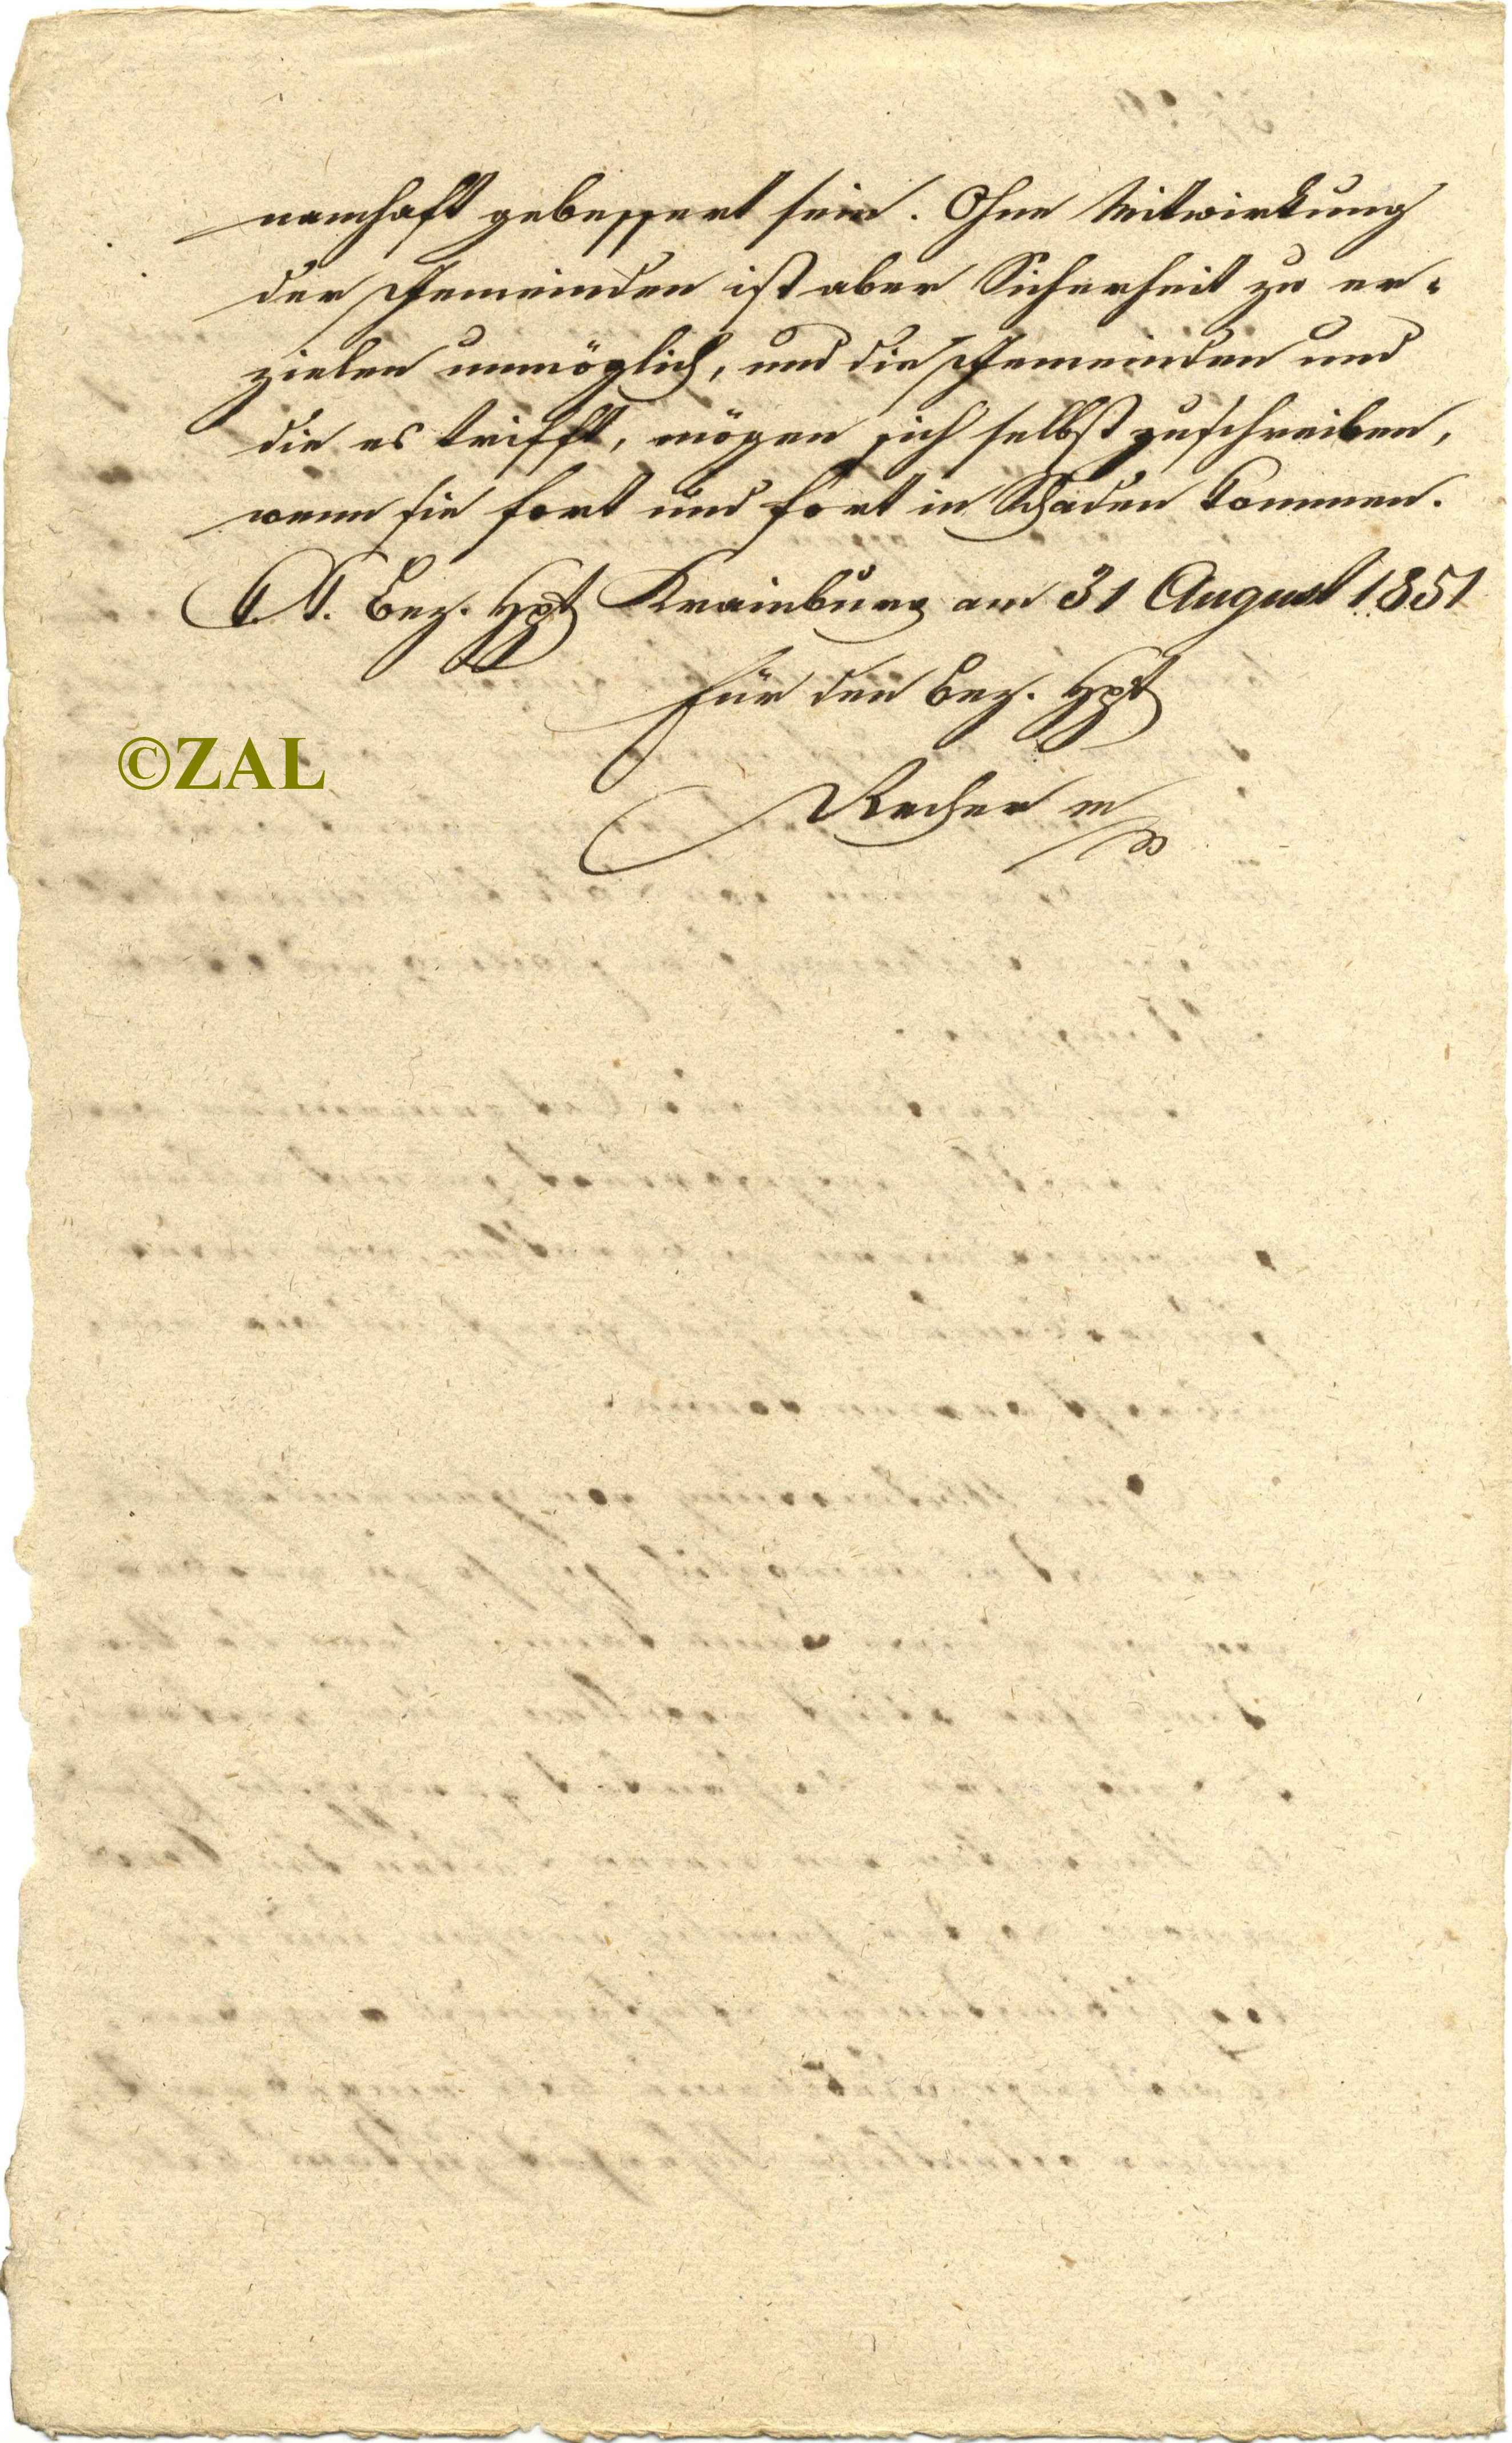 namhaft gebessert sein. Ohne Mitwirkung
der Gemeinden ist aber Sicherheit zu er-
zielen unmöglich, und die Gemeinden und
die es trifft, mögen sich selbst zuschreiben,
wenn sie fort und fort in Schaden kommen.
K. K. Bez. Hpt Krainburg am 31 August 1851
Für den Bez. Hpt
©ZAL
Recher m/p